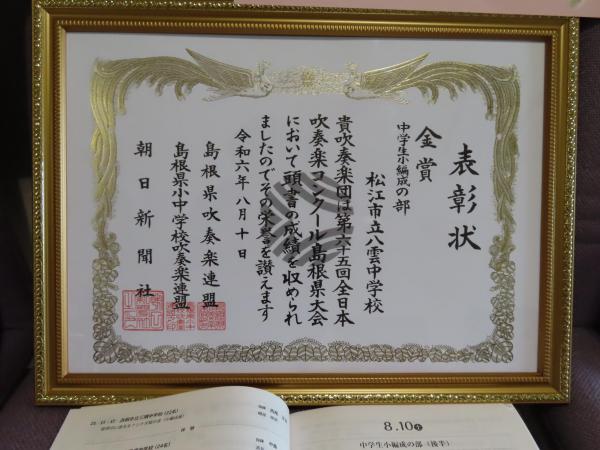 表彰状
金賞
中学生小編成の部
松江市立八雲中学校
貴吹奏楽団は第六十五回全日本
吹奏楽コンクール島根県大会
において頭書の成績を収められ
ましたのでその栄誉を讃えます
令和六年八月十日
島根県吹奏楽連盟
島根県小中学校吹奏楽連盟
朝日新聞社
8.10 ㊏
中学生小編成の部(後半)